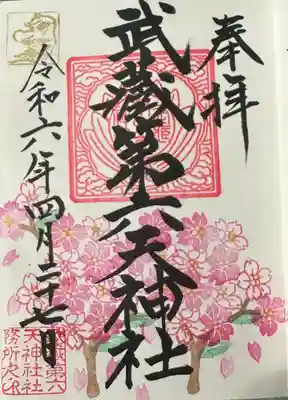 奉拝
武蔵第六天神社
令和六年四月二十七日
武蔵第六
天神社社
務所之印